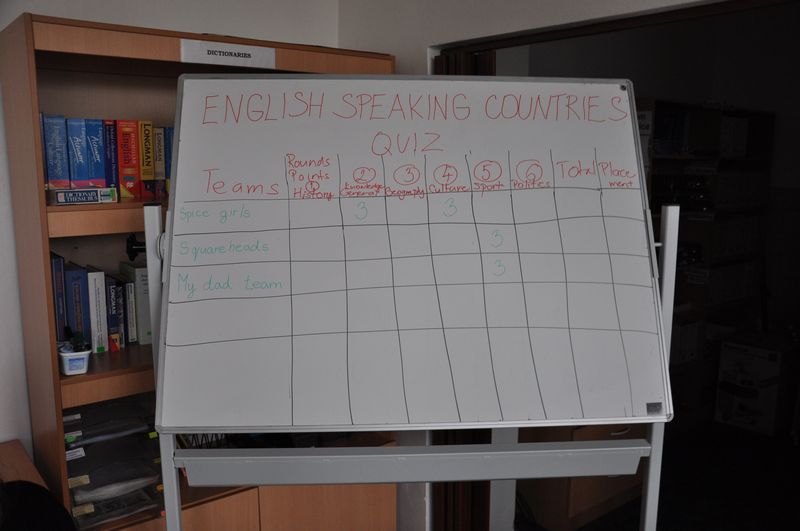 DICTIONARIES
ENGLISH SPEAKING COUNTRIES
QUIZ
Teams
Rounds
Points
① History
② Knowledge General
③ Geography
④ Culture
⑤ Sport
⑥ Politics
Total
Place
ment
Spice girls 3 3
Squareheads 3
My dad team 3
English
LONGMAN
LONGMAN
DICTIONARY
THESAURUS
LONGMAN